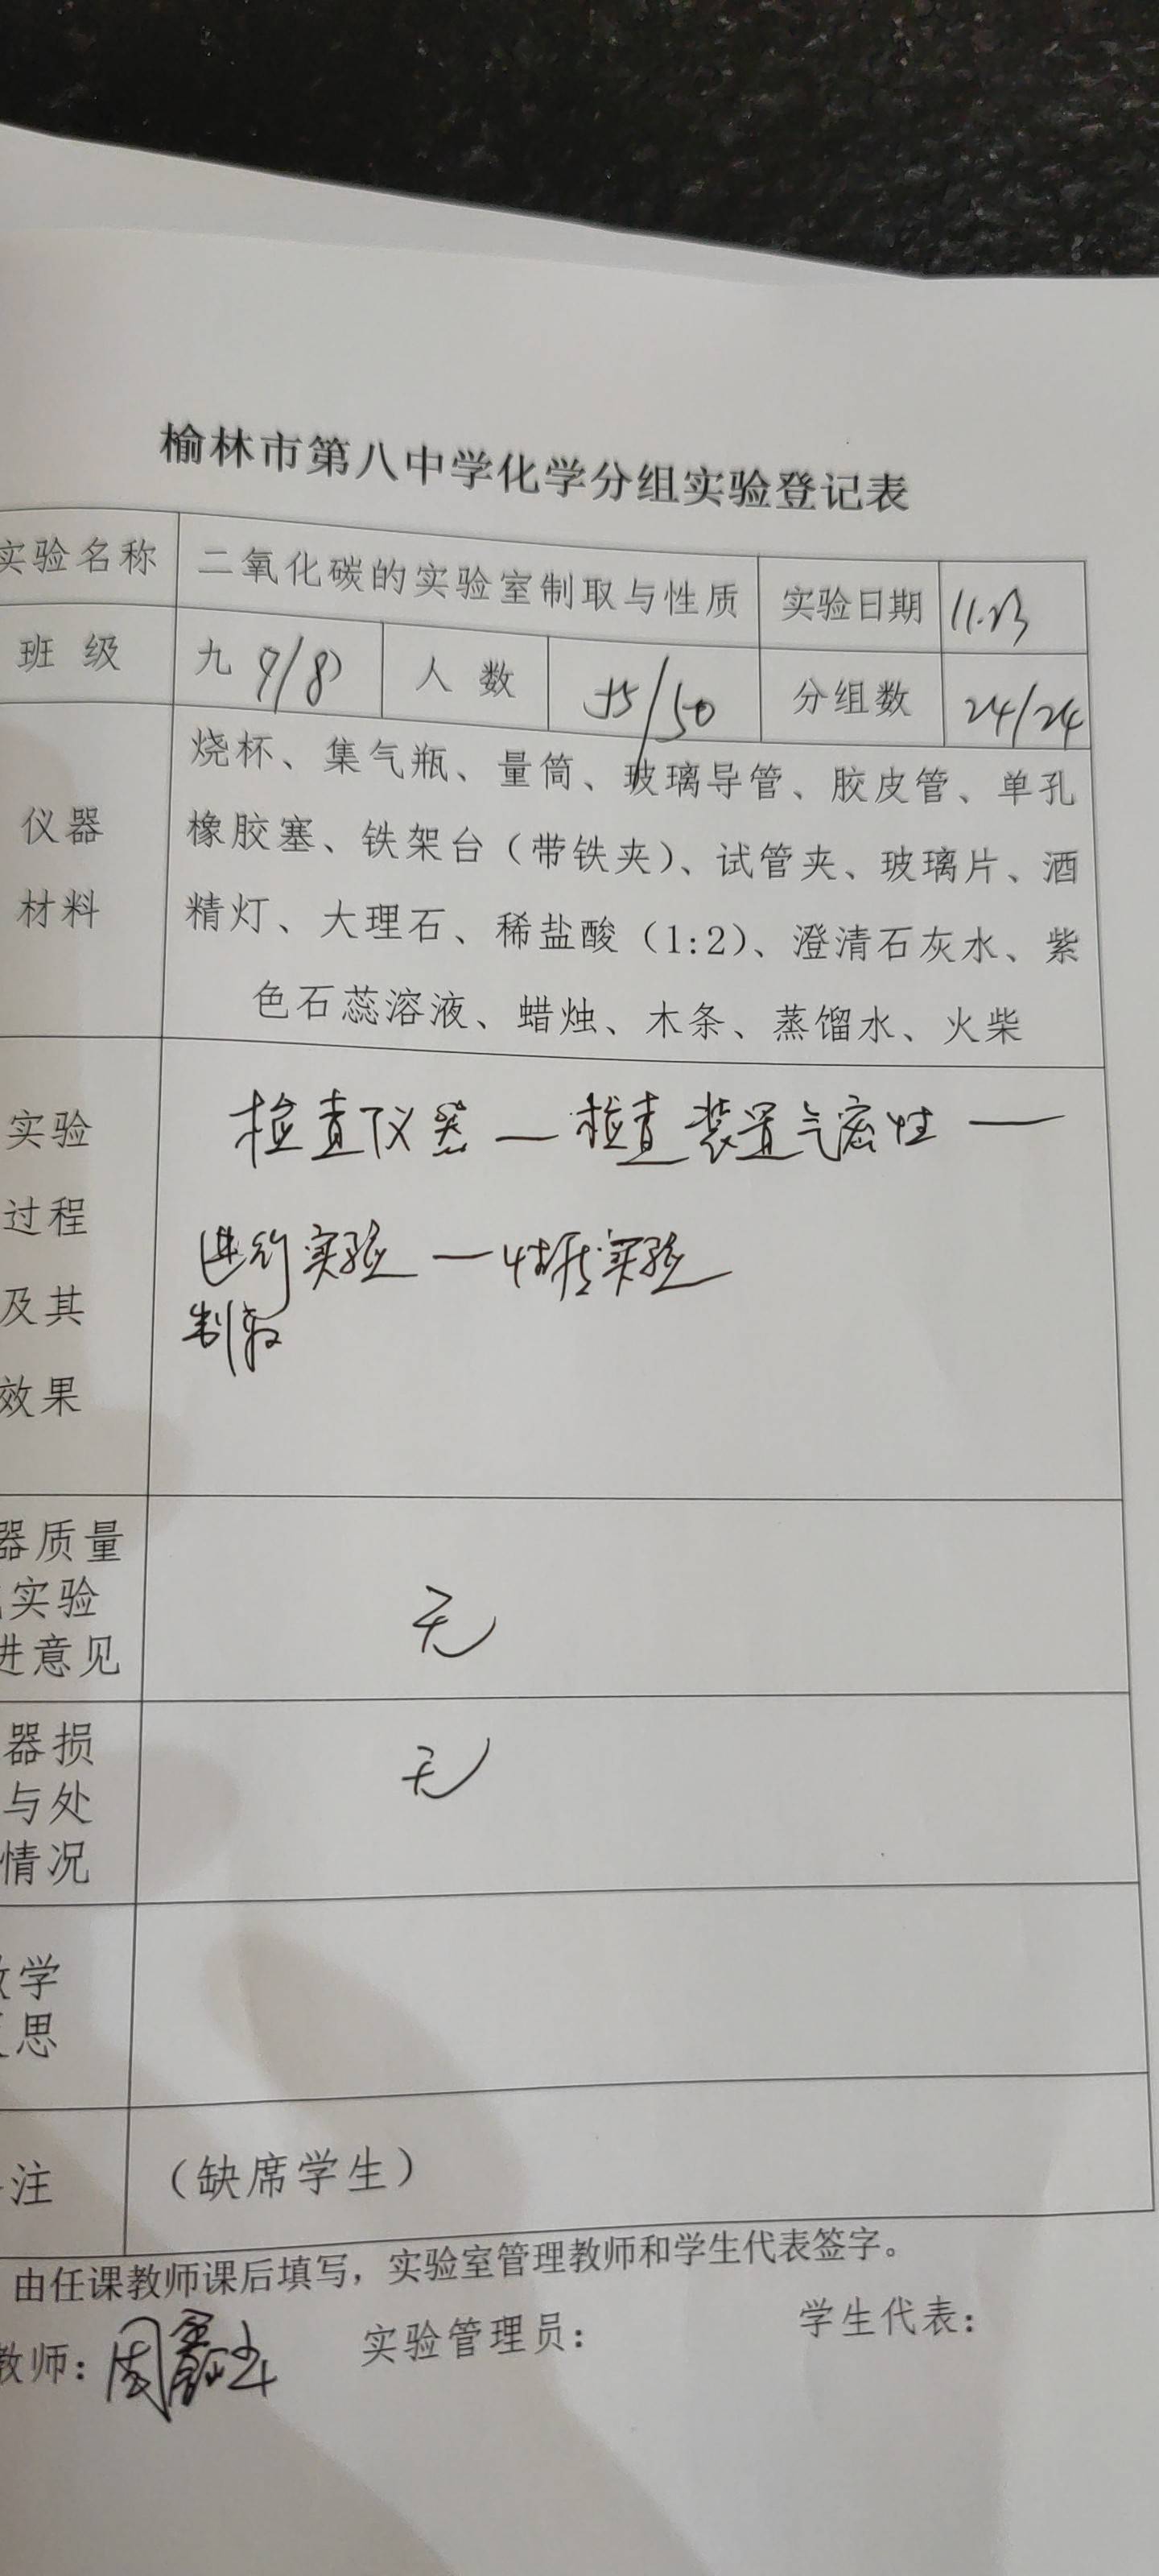 榆林市第八中学化学分组实验登记表
实验名称 二氧化碳的实验室制取与性质 实验日期 11.13
班级 九 9/8 人数 55/50 分组数 24/24
仪器
材料
烧杯、集气瓶、量筒、玻璃导管、胶皮管、单孔
橡胶塞、铁架台（带铁夹）、试管夹、玻璃片、酒
精灯、大理石、稀盐酸（1:2）、澄清石灰水、紫
色石蕊溶液、蜡烛、木条、蒸馏水、火柴
实验
过程
及其
效果
检查仪器—检查装置气密性—
进行实验—性质实验
制取
器质量
实验
进意见
无
器损
与处
情况
无
学
思
注 （缺席学生）
由任课教师课后填写，实验室管理教师和学生代表签字。
教师：周 实验管理员： 学生代表：